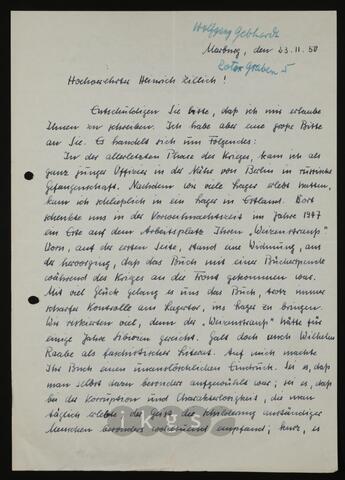 Wolfgang Gebhardt
Marburg, den 23.11.50
Roter Graben 5
Hochverehrter Heinrich Zillich!
Entschuldigen Sie bitte, daß ich mir erlaube
Ihnen zu schreiben. Ich habe aber eine große Bitte
an Sie. Es handelt sich um Folgendes:
In der allerletzten Phase des Krieges, kam ich als
ganz junger Offizier in der Nähe von Berlin in russische
Gefangenschaft. Nachdem wir viele Lager erlebt hatten,
kam ich schließlich in ein Lager in Estland. Dort
schenkte uns in der Vorweihnachtszeit im Jahre 1947
ein Este auf dem Arbeitsplatz Ihren "Weizenstrauß"
Dorn, auf der ersten Seite, stand eine Widmung, aus
der hervorging, daß das Buch mit einer Bücherspende
während des Krieges an die Front gekommen war.
Mit viel Glück gelang es uns das Buch, trotz immer
scharfer Kontrolle am Lagertor, ins Lager zu bringen.
Wir riskierten viel, denn der "Weizenstrauß" hätte für
einige Jahre Sibirien gereicht. Galt doch auch Wilhelm
Raabe als faschistischer Literat. Auf mich machte
Ihr Buch einen unauslöschlichen Eindruck. Sei es, daß
man selbst darin besonders aufgewühlt war; sei es, daß
bei der Korruption und Charakterlosigkeit, die man
täglich erlebte, der Geist der Schilderung anständiger
Menschen besonders wohltuend empfand; kurz, es
ikgs